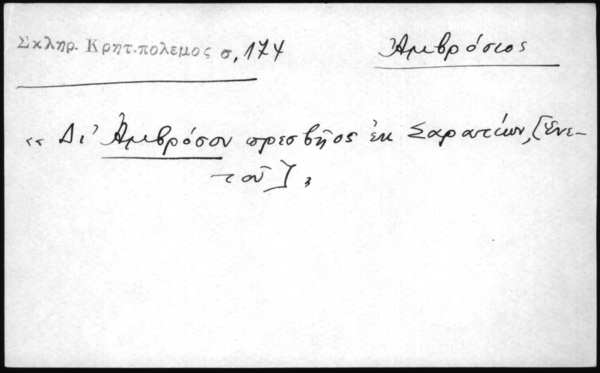 Σκληρ. Κρητ.πολεμος σ, 174
Ἀμβρόσιος
« Δι' Ἀμβρόσον πρεσβῆος ἐκ Σαρατίων, [Ἑνε-
τοῦ] »